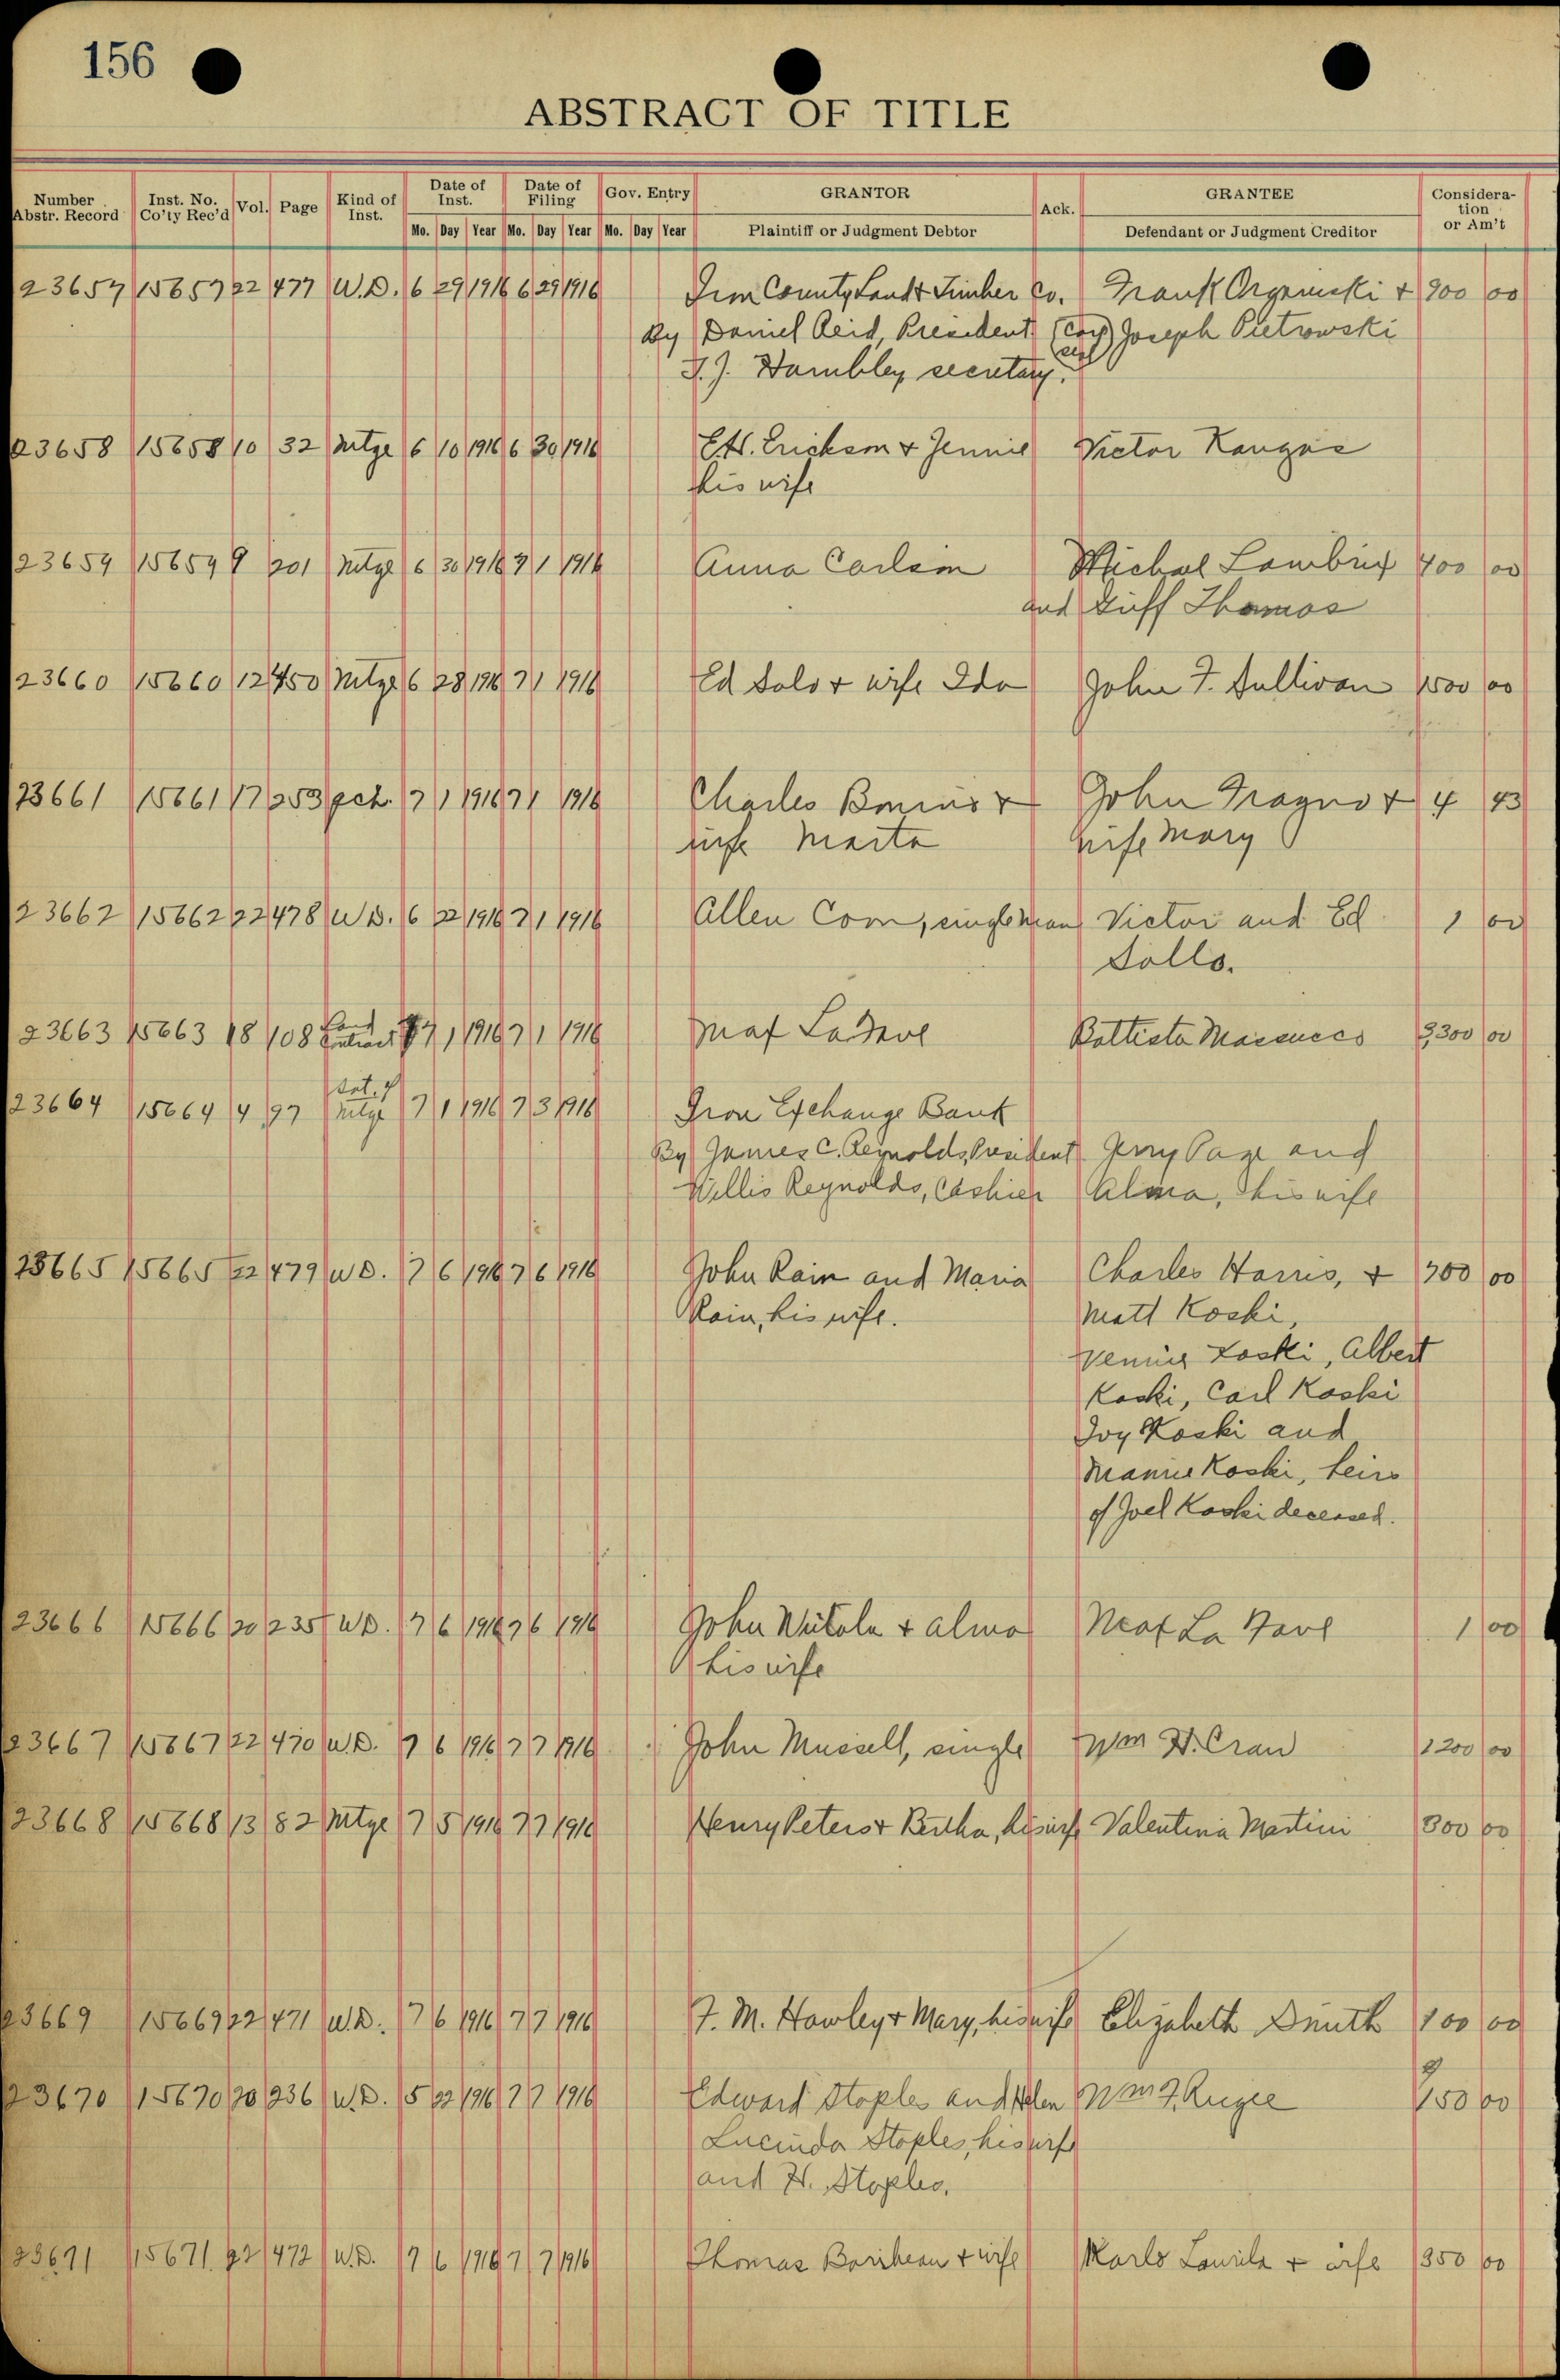 156
ABSTRACT OF TITLE
Number Abstr. Record Inst. No. Co'ty Rec'd Vol. Page Kind of Inst. Date of Inst. Date of Filing Gov. Entry GRANTOR Ack. GRANTEE Consideration or Am't
Mo. Day Year Mo. Day Year Mo. Day Year Plaintiff or Judgment Debtor Defendant or Judgment Creditor
23657 15657 22 477 W.D. 6 29 1916 6 29 1916 Iron County Land & Timber Co. Frank &
By Daniel Reid, President (Corp Joseph Pietrowski
F. J. Hambley secretary. seal)
23658 15658 10 32 Mtge 6 10 1916 6 30 1916 E.H. Erickson & Jennie Victor Kangas
his wife
23659 15659 9 201 Mtge 6 30 1916 7 1 1916 Anna Carlson 400 00
and Thomas
23660 15660 12 450 Mtge 6 28 1916 7 1 1916 Ed Solo & wife Ida John F. Sullivan 1500 00
23661 15661 17 253 qch. 7 1 1916 7 1 1916 Charles & John Fragno & 4 43
wife Marta wife Mary
23662 15662 22 478 W.D. 6 22 1916 7 1 1916 Allen Corn, single man Victor and Ed 1 00
Sollo.
23663 15663 18 108 Land Contract 7 1 1916 7 1 1916 Max LaFave Battista 3,300 00
23664 15664 4 97 Sat. of Mtge 7 1 1916 7 3 1916 Iron Exchange Bank
By James C. Reynolds, President Jerry Page and
Willis Reynolds, Cashier Alma, his wife
23665 15665 22 479 W.D. 7 6 1916 7 6 1916 John Rain and Maria Charles Harris, & 700 00
Rain, his wife. Matt Koski,
Koski, Albert
Koski, Carl Koski
Ivy Koski and
Mamie Koski, heirs
of Joel Koski deceased.
23666 15666 20 235 W.D. 7 6 1916 7 6 1916 John & Alma Max La Fave 1 00
his wife
23667 15667 22 470 W.D. 7 6 1916 7 7 1916 John Mussell, single Wm H. Cran 1200 00
23668 15668 13 82 Mtge 7 5 1916 7 7 1916 Henry Peters & Bertha, his wife Valentina Martini 800 00
23669 15669 22 471 W.D. 7 6 1916 7 7 1916 F. M. Hawley & Mary, his wife Elizabeth Smith 100 00
23670 15670 20 236 W.D. 5 22 1916 7 7 1916 Edward Staples and Helen Wm F. 150 00
Lucinda Staples, his wife
and H. Staples.
23671 15671 22 472 W.D. 7 6 1916 7 7 1916 Thomas Baribeau & wife Karlo Laurila & wife 350 00